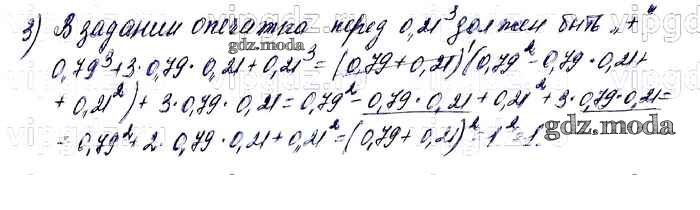 3) В задании опечатка перед 0,21³ должен быть „+"
0,79³+3·0,79·0,21+0,21³=(0,79+0,21)(0,79²-0,79·0,21+
+0,21²)+3·0,79·0,21=0,79²-0,79·0,21+0,21²+3·0,79·0,21=
=0,79²+2·0,79·0,21+0,21²=(0,79+0,21)²=1²=1.
gdz.moda
gdz.moda